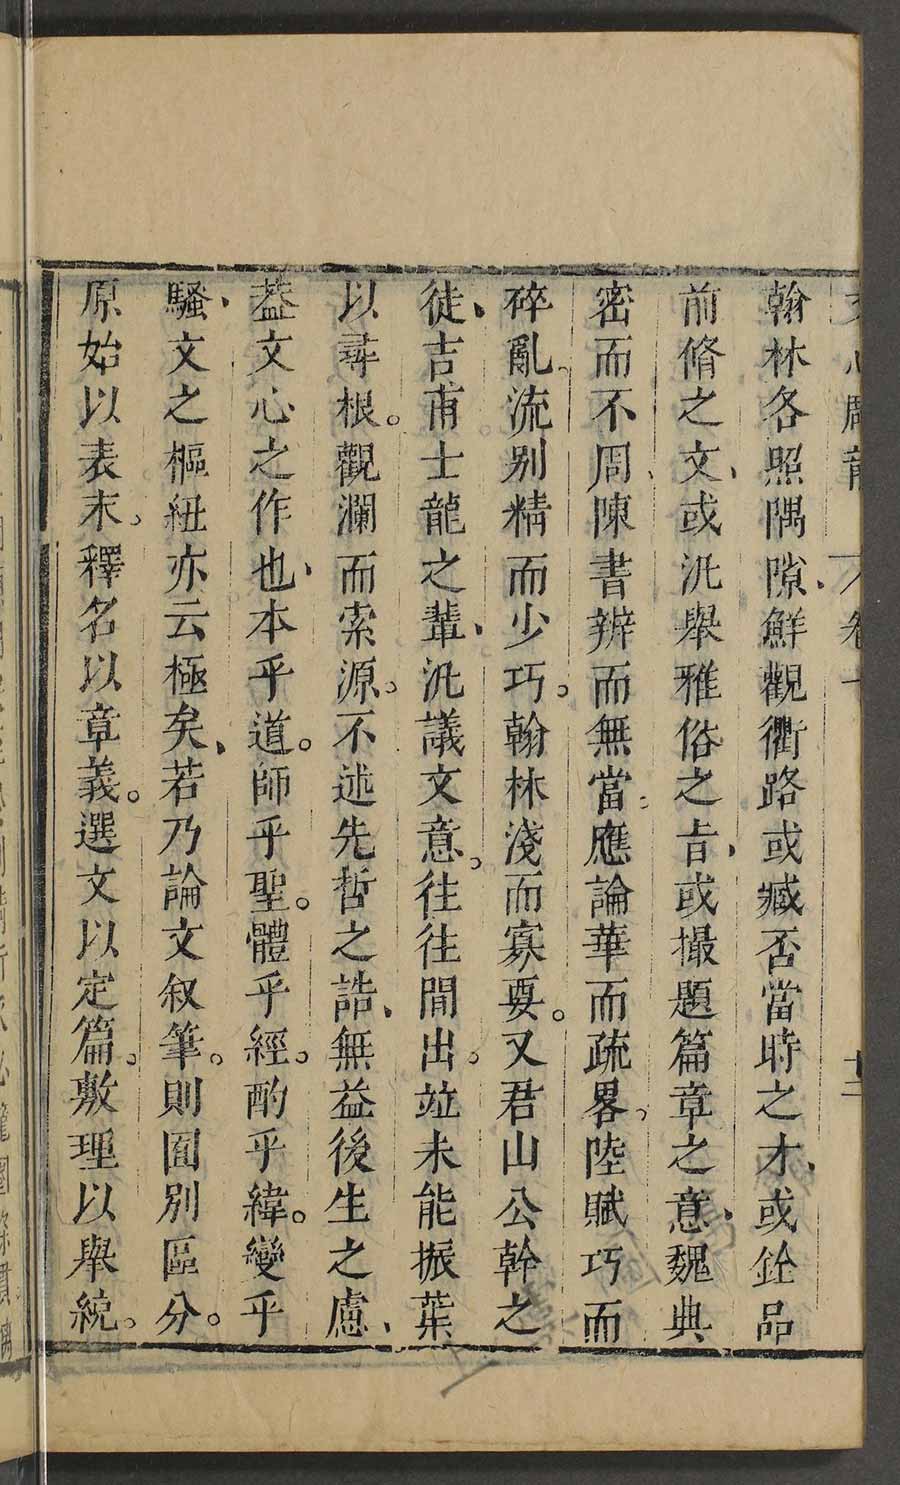 翰林各照隅隙、鮮觀衢路或臧否當時之才、或銓品
前脩之文、或汎舉雅俗之㫖、或撮題篇章之意、魏典
密而不周、陳書辨而無當、應論華而疏畧、陸賦巧而
碎亂、流别精而少巧。翰林淺而寡要。又君山公幹之
徒、吉甫士龍之輩、汎議文意。往往間出。竝未能振葉
以尋根。觀瀾而索源。不述先哲之誥、無益後生之慮、
葢文心之作也、本乎道。師乎聖。體乎經。酌乎緯。變乎
騷、文之樞紐亦云極矣、若乃論文叙筆。則囿別區分。
原始以表末。釋名以章義。選文以定篇。敷理以舉統。